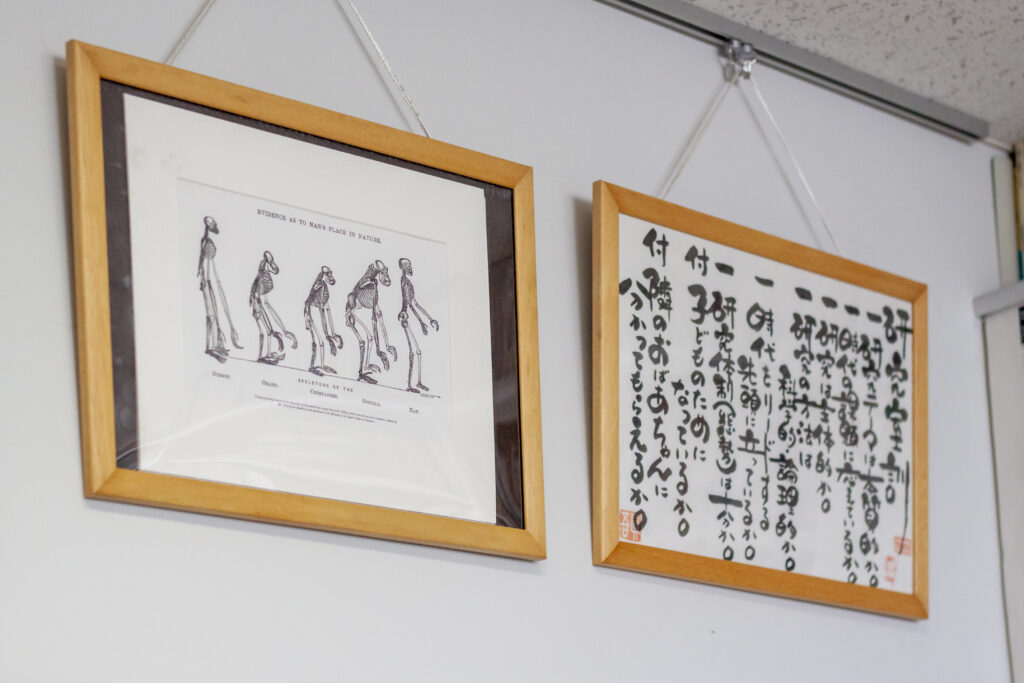 EVIDENCE AS TO MAN'S PLACE IN NATURE.
GIBBON.
ORANG.
SKELETONS OF THE
CHIMPANZEE.
GORILLA.
MAN.
研究室訓
一 研究テーマは本質的か。
一 時代の課題に応えているか。
一 研究は主体的か。
一 研究の方法は
科学的論理的か。
一 時代をリードする
先頭に立っているか。
一 研究体制(態勢)は十分か。
付 子どものために
なっているか。
付 隣のおばあちゃんに
分かってもらえるか。